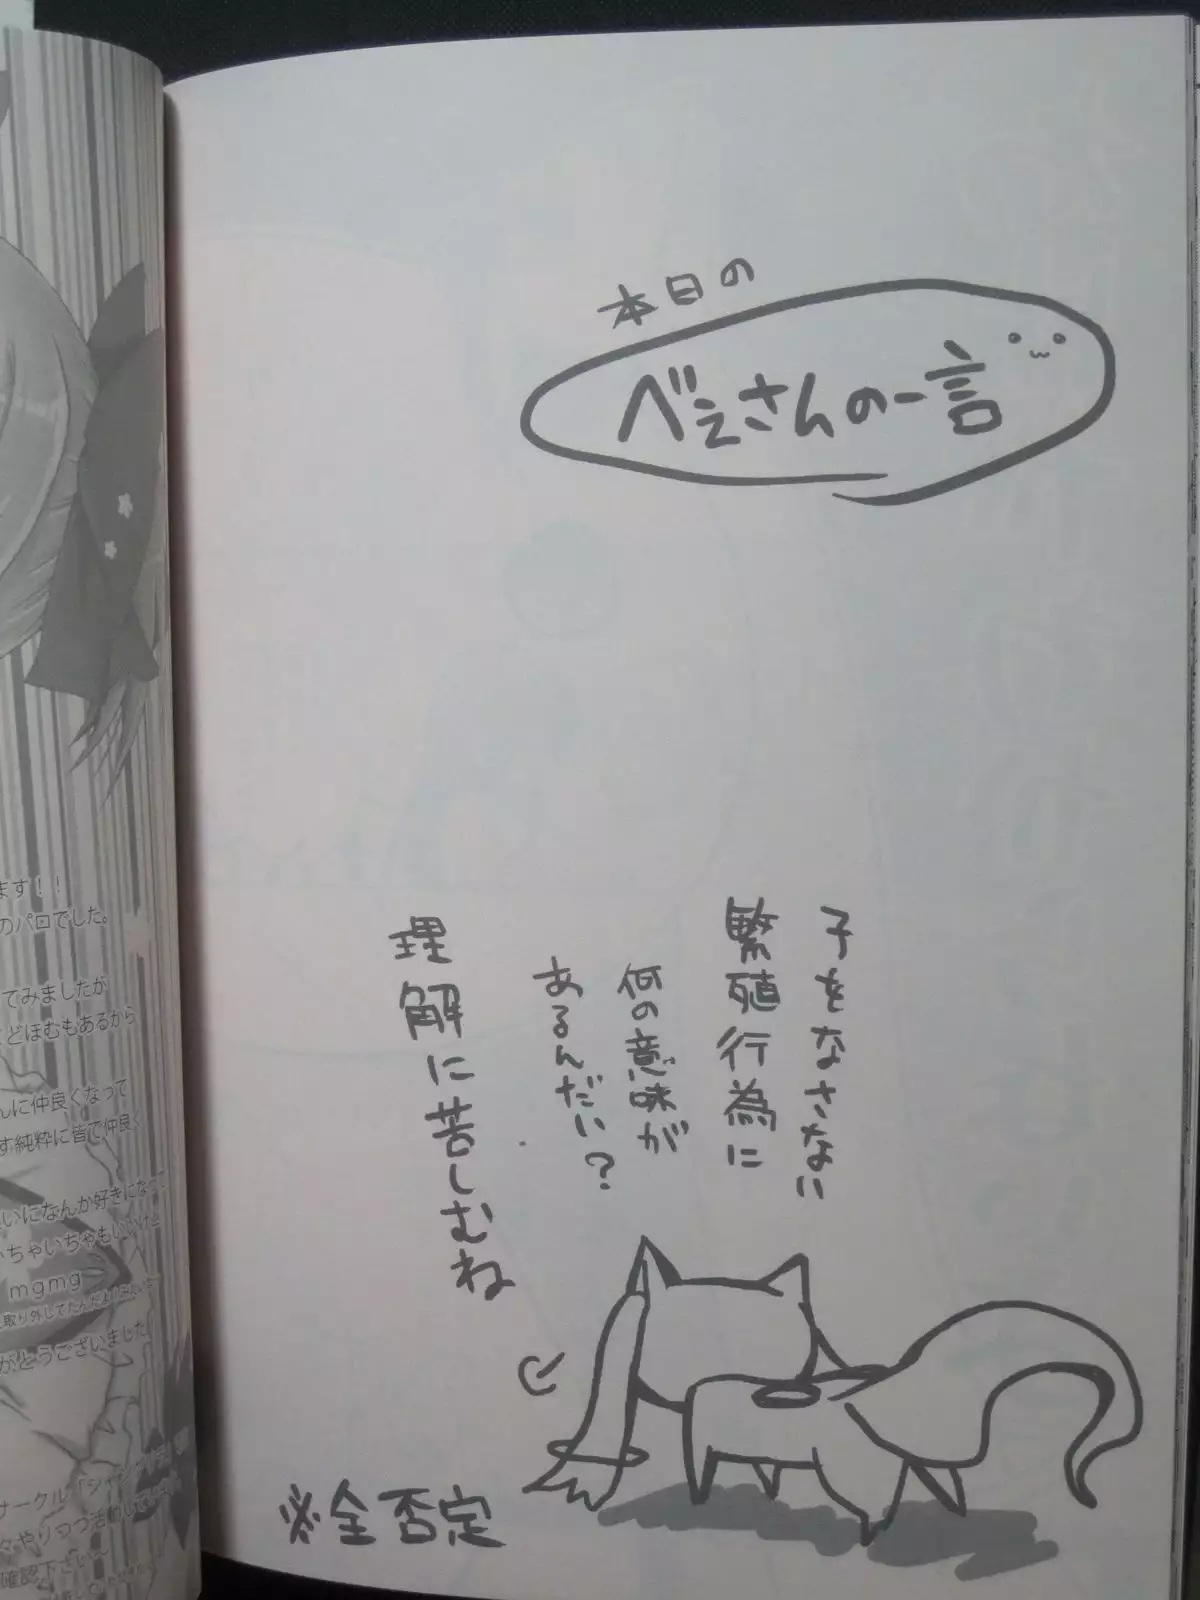 本日の
べぇさんの一言
子をなさない
繁殖行為に
何の意味が
あるんだい?
理解に苦しむね
※全否定
ます!!
のパロでした。
てみましたが
どほむもあるから
んに仲良くなって
す純粋に皆で仲良く
いになんか好きになって
ちゃいちゃもいいけど
mgmg
がとうございました
サークル「シャングリラ」
やりつつ活動して
確認下さい~